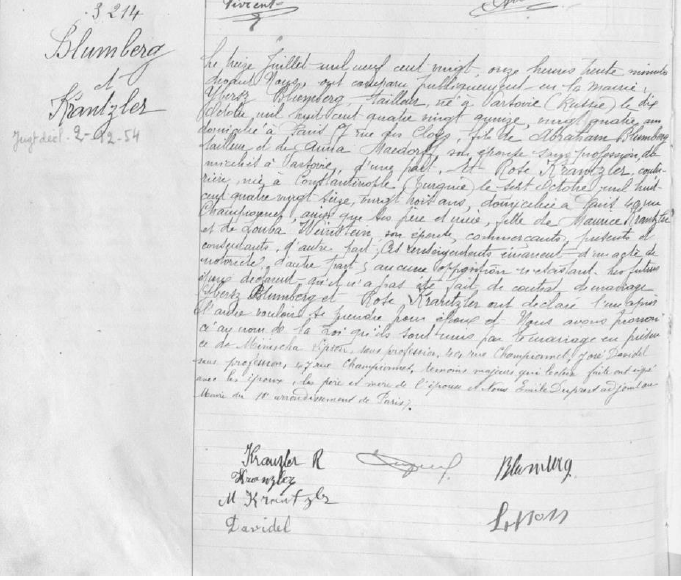 3214
Blumberg
et
Krantzler
Jugt décl. 2-12-54
Le treize Juillet mil neuf cent vingt, onze heures trente minutes
devant Nous, ont comparu publiquement en la mairie:
Blumberg, tailleur, né à Varsovie (Russie) le dix
Octobre mil huit cent quatre vingt quinze, vingt quatre ans
domicilié à Paris rue des Cloys, fils de Abraham Blumberg
tailleur et de Anna son épouse sans profession, do-
miciliés à Varsovie, d'une part, et Rose Krantzler, coutu-
rière, née à Constantinople (Turquie) le sept Octobre mil huit
cent quatre vingt seize, vingt trois ans, domiciliée à Paris 49 rue
Championnet, ainsi que ses père et mère, fille de Maurice Krantzler
et de Louba Weinstein, son épouse, commerçants, présents et
consentants, d'autre part; Ces renseignements émanent d'un acte de
notoriété, d'autre part; aucune opposition n'existant. Les futurs
époux déclarent qu'il n'a pas été fait de contrat de mariage
Blumberg et Rose Krantzler ont déclaré l'un après
l'autre vouloir se prendre pour époux et Nous avons prononcé
au nom de la Loi qu'ils sont unis par le mariage en présen-
ce de sans profession, rue Championnet, David
sans profession, 47 rue Championnet, témoins majeurs qui lecture faite ont signé
avec les époux, les père et mère de l'épouse et Nous Emile adjoint au
Maire du 18 arrondissement de Paris.
Kranzler R
Blumberg
Kranzler
M Krantzler
Davidel